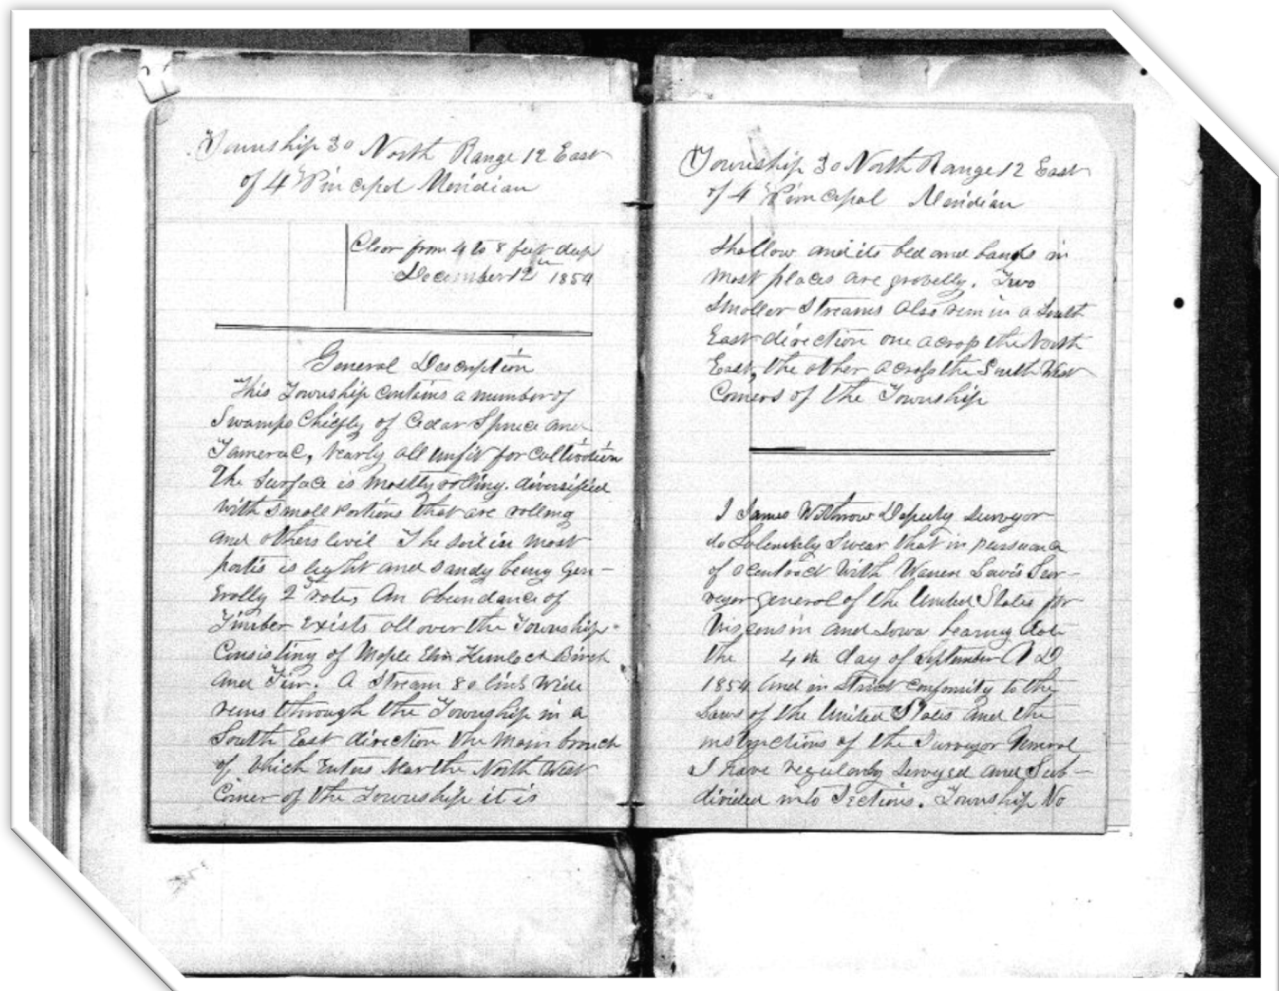 Township 30 North Range 12 East
of 4th Principal Meridian
Clear from 4 to 8 feet deep
December 12th 1854
General Description
This Township contains a number of
Swamps Chiefly of Cedar Spruce and
Tamerac, nearly all unfit for Cultivation
The Surface is mostly rolling. diversified
with small Portions that are rolling
and others level The soil in most
parts is light and sandy being Gen-
erally 2nd rate, An abundance of
Timber exists all over the Township
Consisting of Maple Elm Hemlock Birch
and Fir. A Stream 80 links wide
runs through the Township in a
South East direction the main branch
of which Enters Near the North West
Corner of the Township it is
Township 30 North Range 12 East
of 4th Principal Meridian
Shallow and its bed and banks in
most places are gravelly. Two
Smaller Streams also run in a South
East direction one across the North
East, the other across the South West
Corners of the Township
I James Withrow Deputy Surveyor
do Solemnly Swear that in pursuance
of a contract with Warner Lewis Sur-
veyor general of the United States for
Wisconsin and Iowa bearing date
the 4th day of September A D
1854 and in strict conformity to the
Laws of the United States and the
instructions of the Surveyor General
I have regularly surveyed and Sub-
divided into Sections. Township No